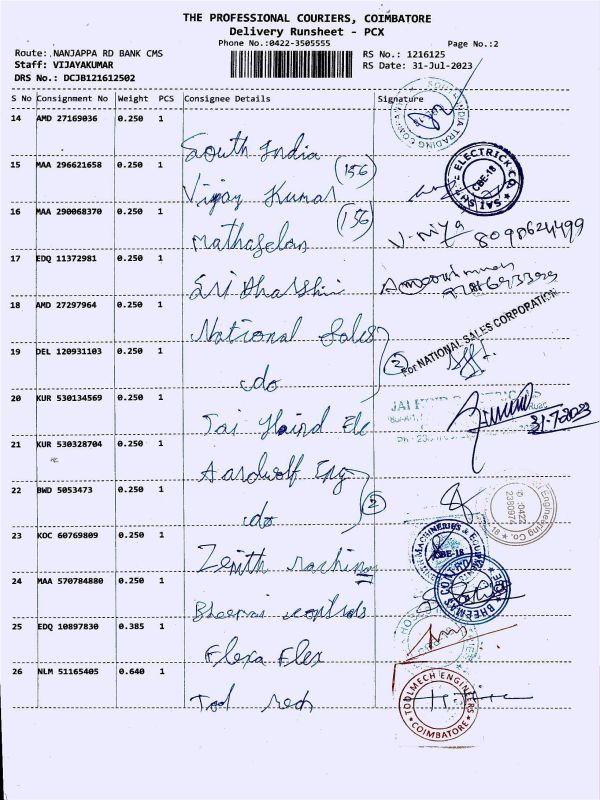 THE PROFESSIONAL COURIERS, COIMBATORE
Delivery Runsheet - PCX
Phone No.:0422-3505555
Page No.:2
Route: NANJAPPA RD BANK CMS
RS No.: 1216125
Staff: VIJAYAKUMAR
RS Date: 31-Jul-2023
DRS No.: DCJB121612502
S No Consignment No Weight PCS Consignee Details Signature
14 AMD 27169036 0.250 1
South India
SOUTH INDIA TRADING COMPANY
15 MAA 296621658 0.250 1
Vijay Kumar (156)
SAI ELECTRICK CO. CBE-18
16 MAA 290068370 0.250 1
Mathaselan (156)
V-niya 8098624499
17 EDQ 11372981 0.250 1
Sri Dharshini
18 AMD 27297964 0.250 1
National Sales
For NATIONAL SALES CORPORATION
19 DEL 120931103 0.250 1
do (2)
20 KUR 530134569 0.250 1
Jai Hind Ele
JAI
31-7-2023
21 KUR 530328704 0.250 1
Aardwolf Eng
22 BWD 5053473 0.250 1
do (2)
Engineering Co.
0422
2380974
23 KOC 60769809 0.250 1
Zenith Machin
MACHINERIES & EQUIPM CBE-18
24 MAA 570784880 0.250 1
Bheema controls
BHEEMA CONTROLS
25 EDQ 10897830 0.385 1
Flexa Flex
26 NLM 51165405 0.640 1
Tool mech
TOOLMECH ENGINEERS COIMBATORE